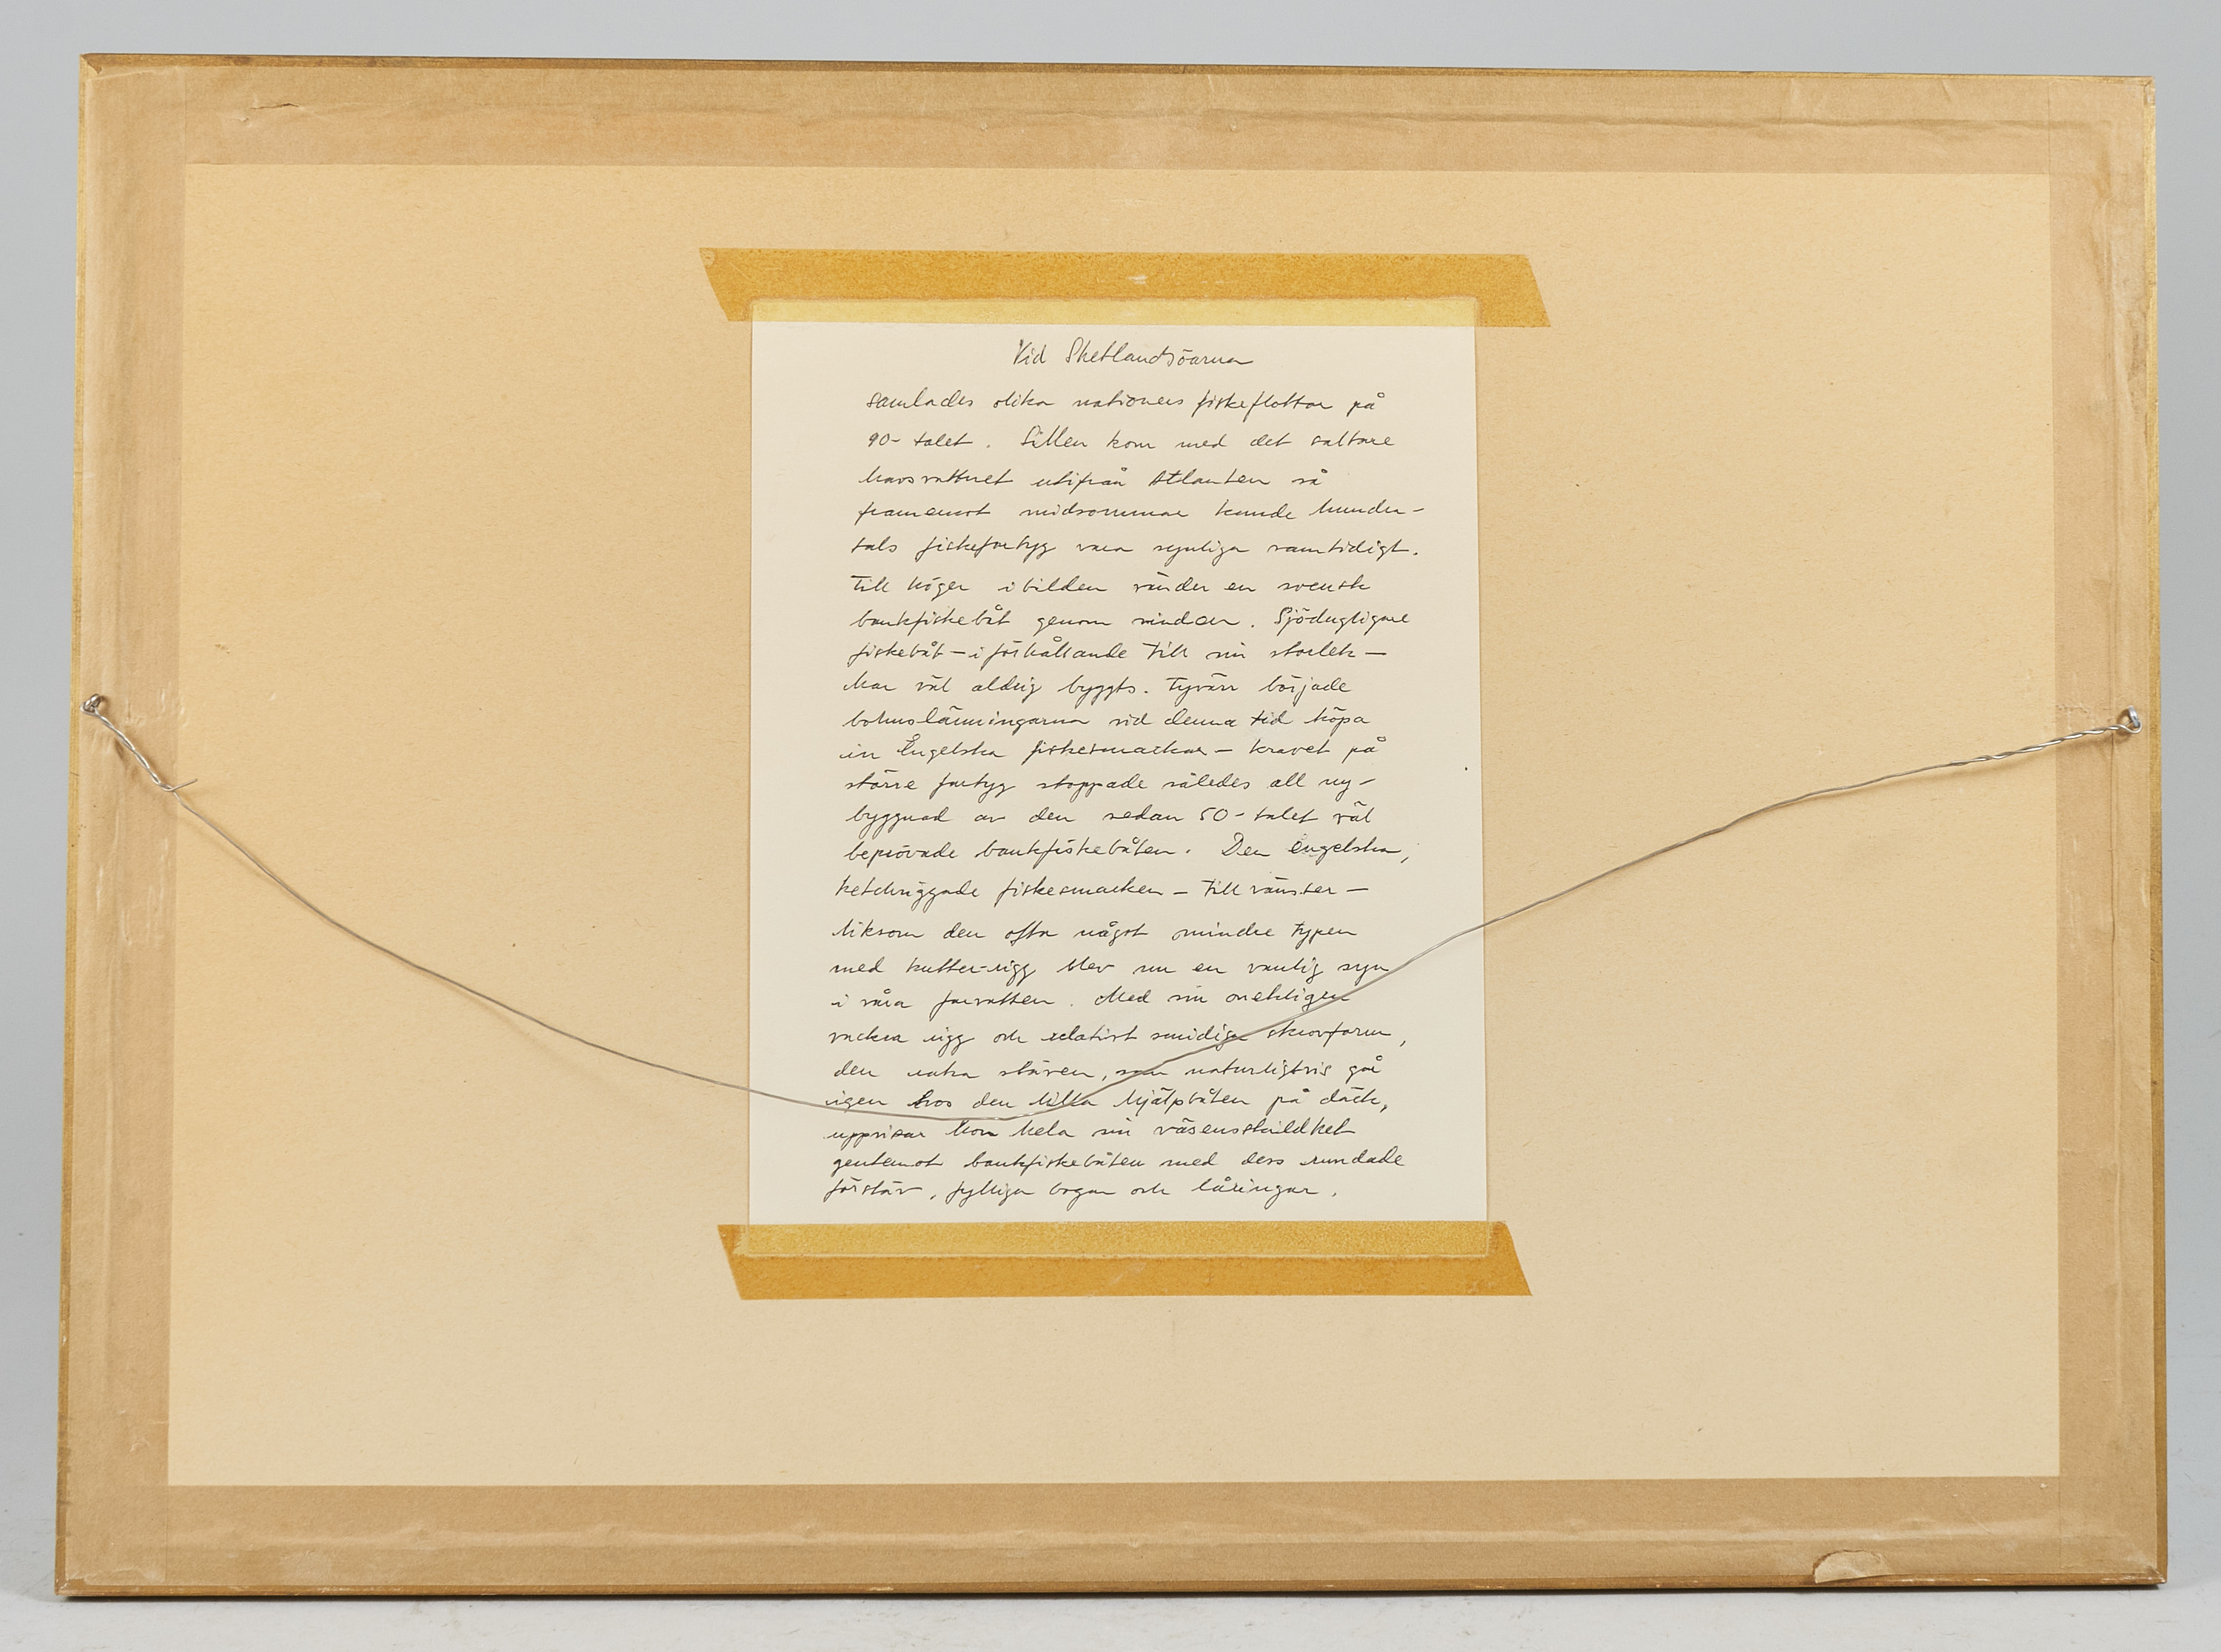 Vid Shetlandsöarna
samlades olika nationers fiskeflottor på
90-talet. Sillen kom med det saltare
havsvattnet utifrån Atlanten så
framemot midsommar kunde hundra-
tals fiskefartyg vara synliga samtidigt.
Till höger i bilden vänder en svensk
bankfiskebåt genom vinden. Sjödugligare
fiskebåt – i förhållande till sin storlek –
har väl aldrig byggts. Tyvärr började
bohuslänningarna vid denna tid köpa
in Engelska fiskesmackar – kravet på
större fartyg stoppade således all ny-
byggnad av den sedan 50-talet väl
beprövade bankfiskebåten. Den engelska,
ketchriggade fiskesmacken – till vänster –
liksom den ofta något mindre typen
med kutter-rigg blev nu en vanlig syn
i våra farvatten. Med sin onekligen
vackra rigg och relativt smidiga skrovform,
den raka stäven, som naturligtvis går
igen hos den lilla hjälpbåten på däck,
uppvisar hon hela sin väsensskildhet
gentemot bankfiskebåten med dess rundade
förstäv, fylliga bogar och låringar.